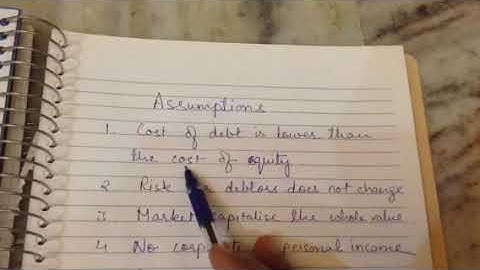 Assumptions
1. Cost of debt is lower than
the cost of equity
2 Risk debtors does not change
3 Market capitalise the whole value
4. No personal income